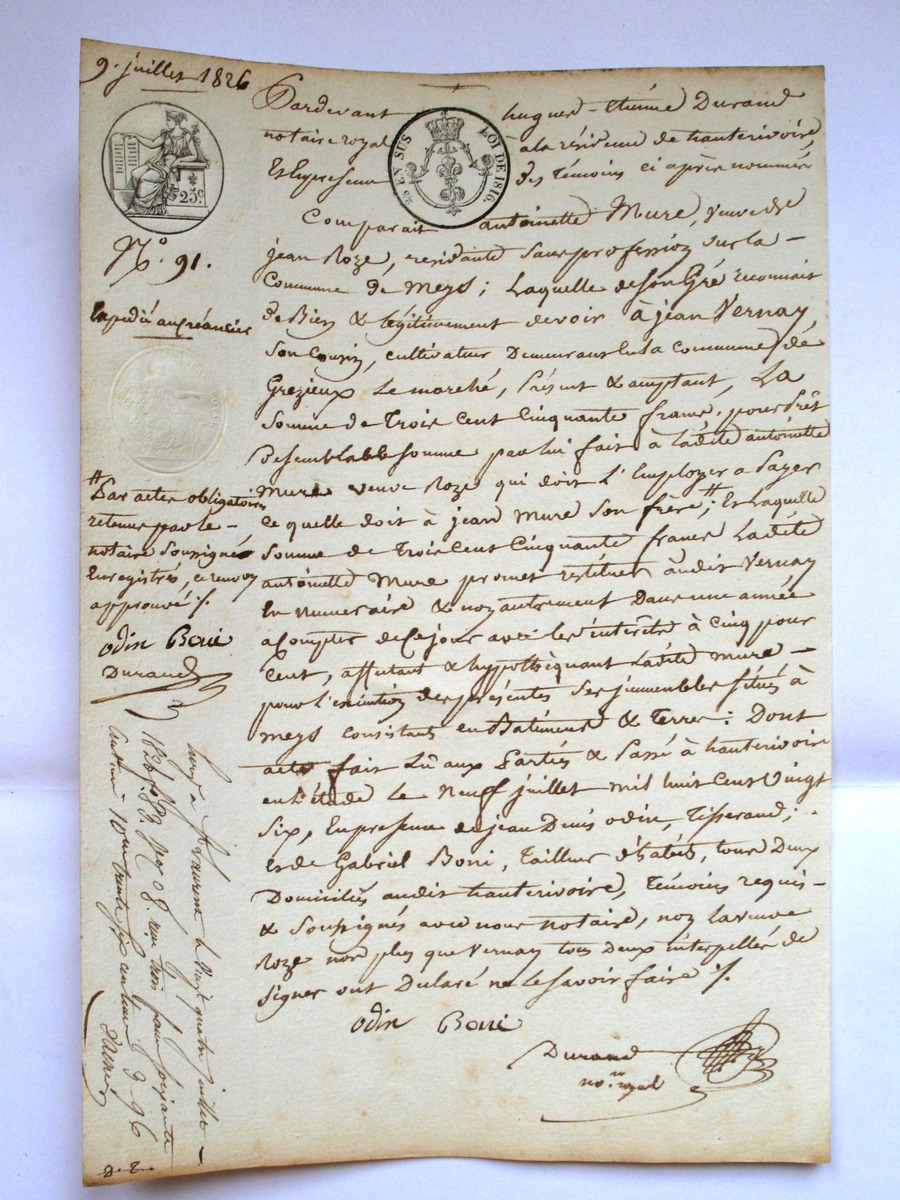 9. juillet 1826
Pardevant hugues-Etiénne Durand
notaire royal à la résidence de hauterivoire,
Et En presence des Témoins ci après nommés
25.c
EN SUS
LOI DE 1816.
Comparait antoinette Mure, veuve de
jean Roze, residante sans profession sur la
Commune de Meys; Laquelle de Son Gré reconnait
de Bien & légitimement devoir à jean Vernay
Son Cousin, cultivateur Demeurant En la commune de
Grezieux Le marché, présent & acceptant, La
Somme de Trois Cent Cinquante francs, pour Prêt
de semblable somme par lui fait à Ladite antoinette
Mure veuve Roze qui doit L'Employer a Payer
ce quelle doit à jean Mure Son frère #; Et Laquelle
Somme de Trois Cent Cinquante francs Ladite
antoinette Mure promet restituer audit Vernay
En Numéraire & non autrement Dans une année
a Compter de Ce jour avec les intérêts à Cinq pour
Cent, affectant & hypothéquant Ladite Mure
pour L'exécution des présentes Ses immeubles Situés à
Meys Consistants en Batiments & Terres: Dont
acte fait Lû aux Parties & Passé à hauterivoire
en L'étude Le Neuf juillet mil huit Cent Vingt
Six, En presence de jean Denis odin, Tisserand;
et de Gabriel Boni, Tailleur d'habits, tous Deux
Domiciliés audit hauterivoire, Témoins requis
& Soussignés avec nous notaire, non la veuve
Roze non plus que Vernay tous deux interpellés de
Signer ont Déclaré ne Le Savoir faire ./.
odin Boni
Durand
no.re royal
N.o 91.
Expedié au Créancier
# Par actes obligatoires
retenus par le
notaire Soussigné
Enregistrés, ce renvoy
approuvé ./.
odin Boni
Durand
Le vingt quatre juillet
1826